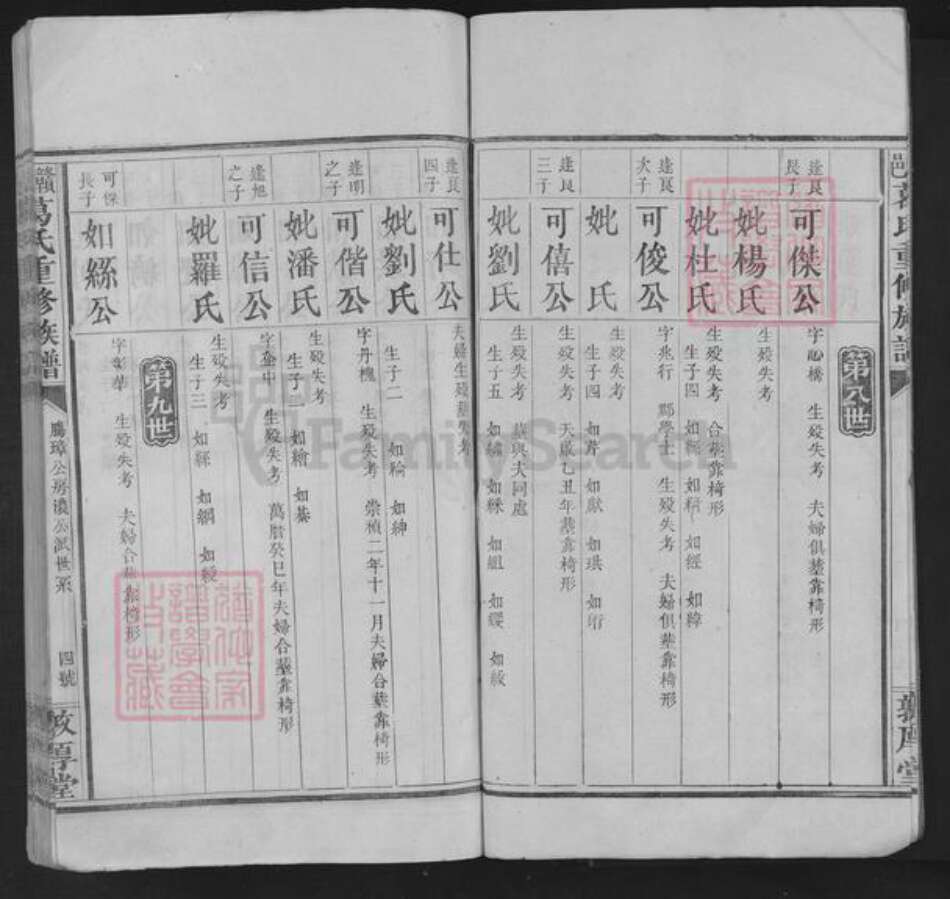 邑葛氏重修族譜
敦厚堂
第八世
逢良長子
可傑公
字心橋 生殁失考 夫婦俱塟靠椅形
妣楊氏
生殁失考
妣杜氏
生殁失考 合塟靠椅形
生子四 如 如 如經 如緯
逢良次子
可俊公
字兆行 鄢學士 生殁失考 夫婦俱塟靠椅形
妣 氏
生殁失考
生子四 如昇 如獻 如琪 如珩
逢良三子
可僖公
生殁失考 天啟乙丑年塟靠椅形
妣劉氏
生殁失考 塟與夫同處
生子五 如繡 如綵 如組 如纓 如紋
逢良四子
可仕公
夫婦生殁塟失考
妣劉氏
生子二 如綸 如紳
逢明之子
可偕公
字丹槐 生殁失考 崇禎二年十一月夫婦合塟靠椅形
妣潘氏
生殁失考
生子二 如繪 如綦
逢旭之子
可信公
字奎中 生殁失考 萬曆癸巳年夫婦合塟靠椅形
妣羅氏
生殁失考
生子三 如 如綱 如綬
第九世
可保長子
如綠公
字彰華 生殁失考 夫婦合塟靠椅形
贛葛氏重修族譜
鳳璋公房濩公派世系
四號
敦厚堂
FamilySearch